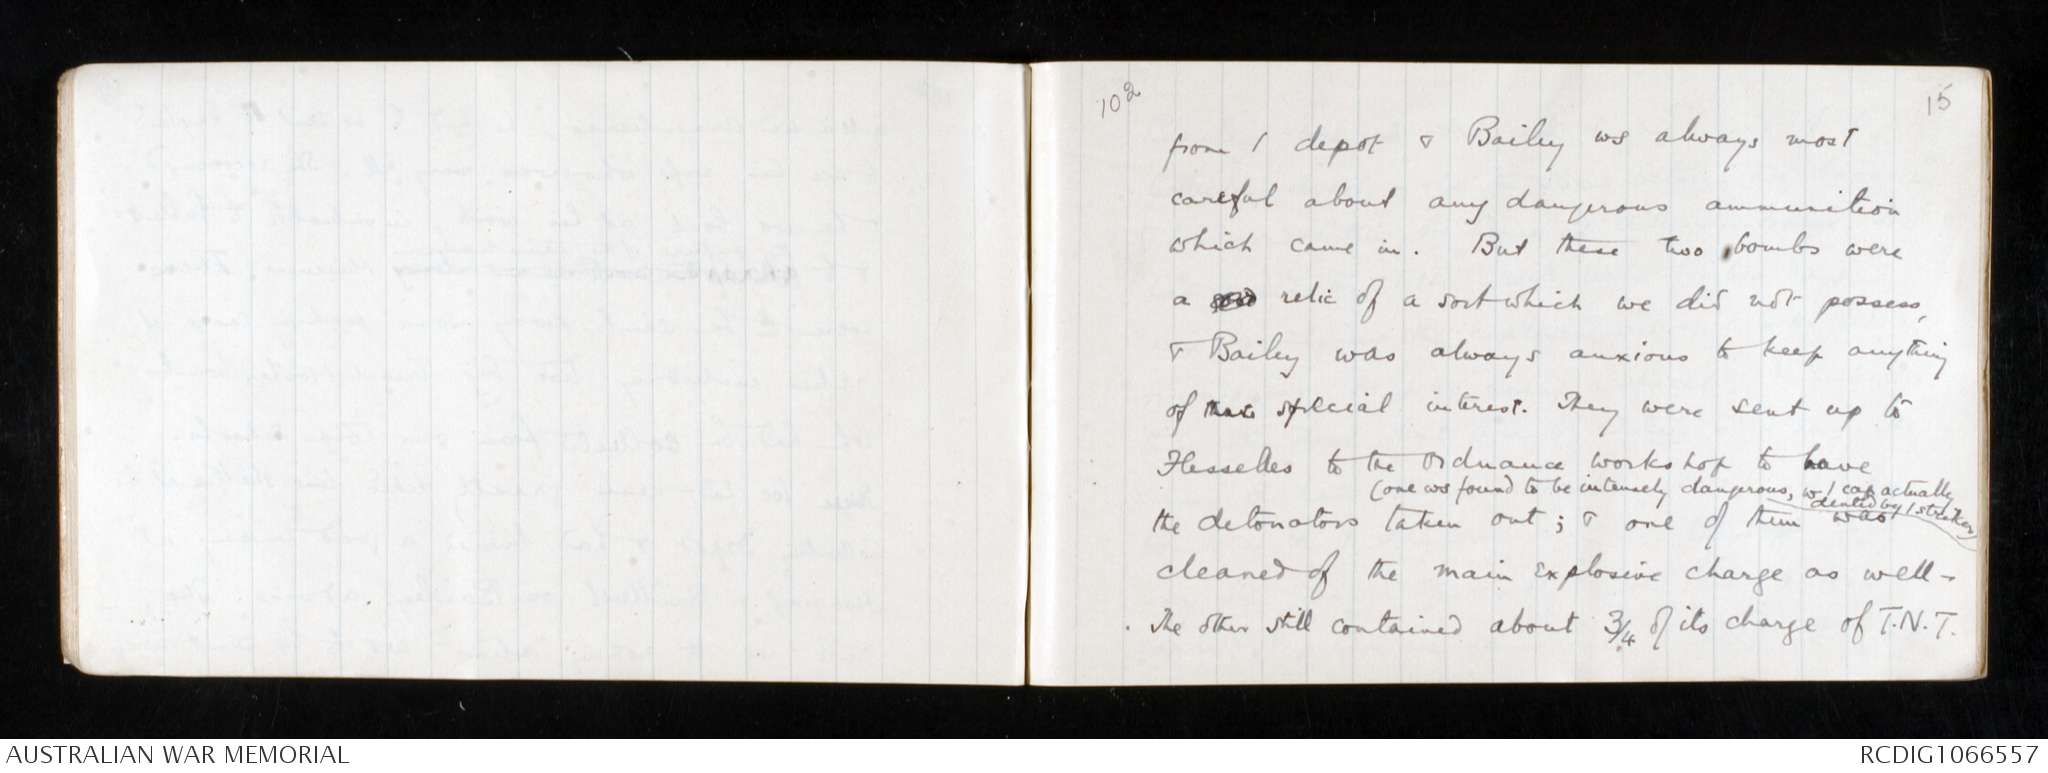 102
15
from / depot & Bailey ws always most
careful about any dangerous ammunition
which came in. But these two bombs were
a relic of a sort which we did not possess,
& Bailey was always anxious to keep anything
of special interest. They were sent up to
Flesselles to the Ordnance workshop to have
(one ws found to be intensely dangerous, w / cap actually
dented by / striker)
the detonators taken out; & one of them was
cleaned of the main explosive charge as well -
. The other still contained about 3/4 of its charge of T.N.T.
AUSTRALIAN WAR MEMORIAL
RCDIG1066557